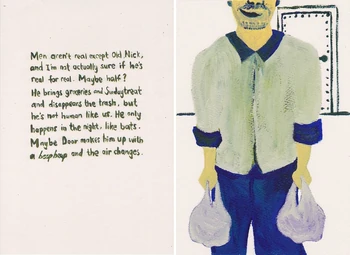 Men aren't real except Old Nick,
and I'm not actually sure if he's
real for real. Maybe half?
He brings groceries and Sundaytreat
and disappears the trash, but
he's not human like us. He only
happens in the night, like bats.
Maybe Door makes him up with
a beep beep and the air changes.